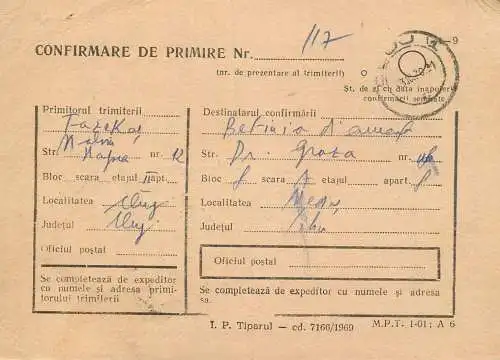 CONFIRMARE DE PRIMIRE Nr. 117
(nr. de prezentare al trimiterii)
St. de zi cu data înapoierii
confirmării semnate
Primitorul trimiterii
Str. nr. 12
Bloc scara etajul III apt.
Localitatea Cluj
Județul Cluj
Oficiul poștal
Se completează de expeditor
cu numele și adresa primi-
torului trimiterii
Destinatarul confirmării
Str. Dr. Groza nr.
Bloc scara etajul apart.
Localitatea
Județul
Oficiul postal
Se completează de expeditor cu numele și adresa
sa.
I. P. Tiparul — cd. 7166/1969 M.P.T. 1-01; A 6